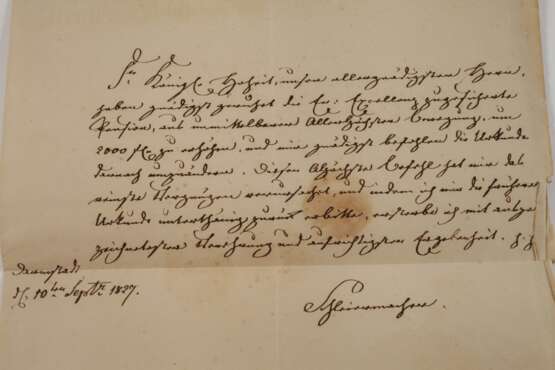 Sr. Königl. Hoheit, unser allergnädigster Herr,
haben gnädigst geruhet die Ew. Excellenz zugesicherte
Pension, aus unmittelbarer Allerhöchster Bewegung, um
2000 fl. zu erhöhen, und mir gnädigst befohlen die Urkunde
darnach umzuändern. Diesen Allerhöchste Befehl hat mir das
reinste Vergnügen verursacht, und indem ich mir die frühere
Urkunde unterthänig zurück erbitte, ersterbe ich mit ausge-
zeichnetster Verehrung und aufrichtigster Ergebenheit.
Darmstadt
d. 10ten Septr. 1827.
Schleiermacher.